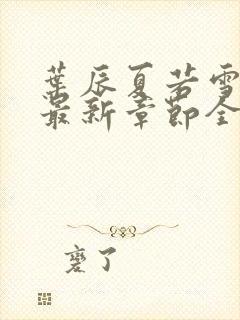 葉辰夏若雪
最新章節全
薆了